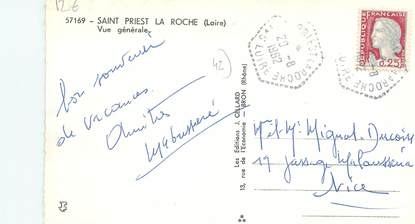 12€
57169 - SAINT PRIEST LA ROCHE (Loire)
Vue générale
(42)
bon souvenir
de vacances
Amitiés
Les Editions J. CELLARD
13, rue de l'Economie - BRON (Rhône)
REPUBLIQUE FRANÇAISE
0,25
20 -8
1962
Mr et Me Mignot
17 passage Malaussena
Nice